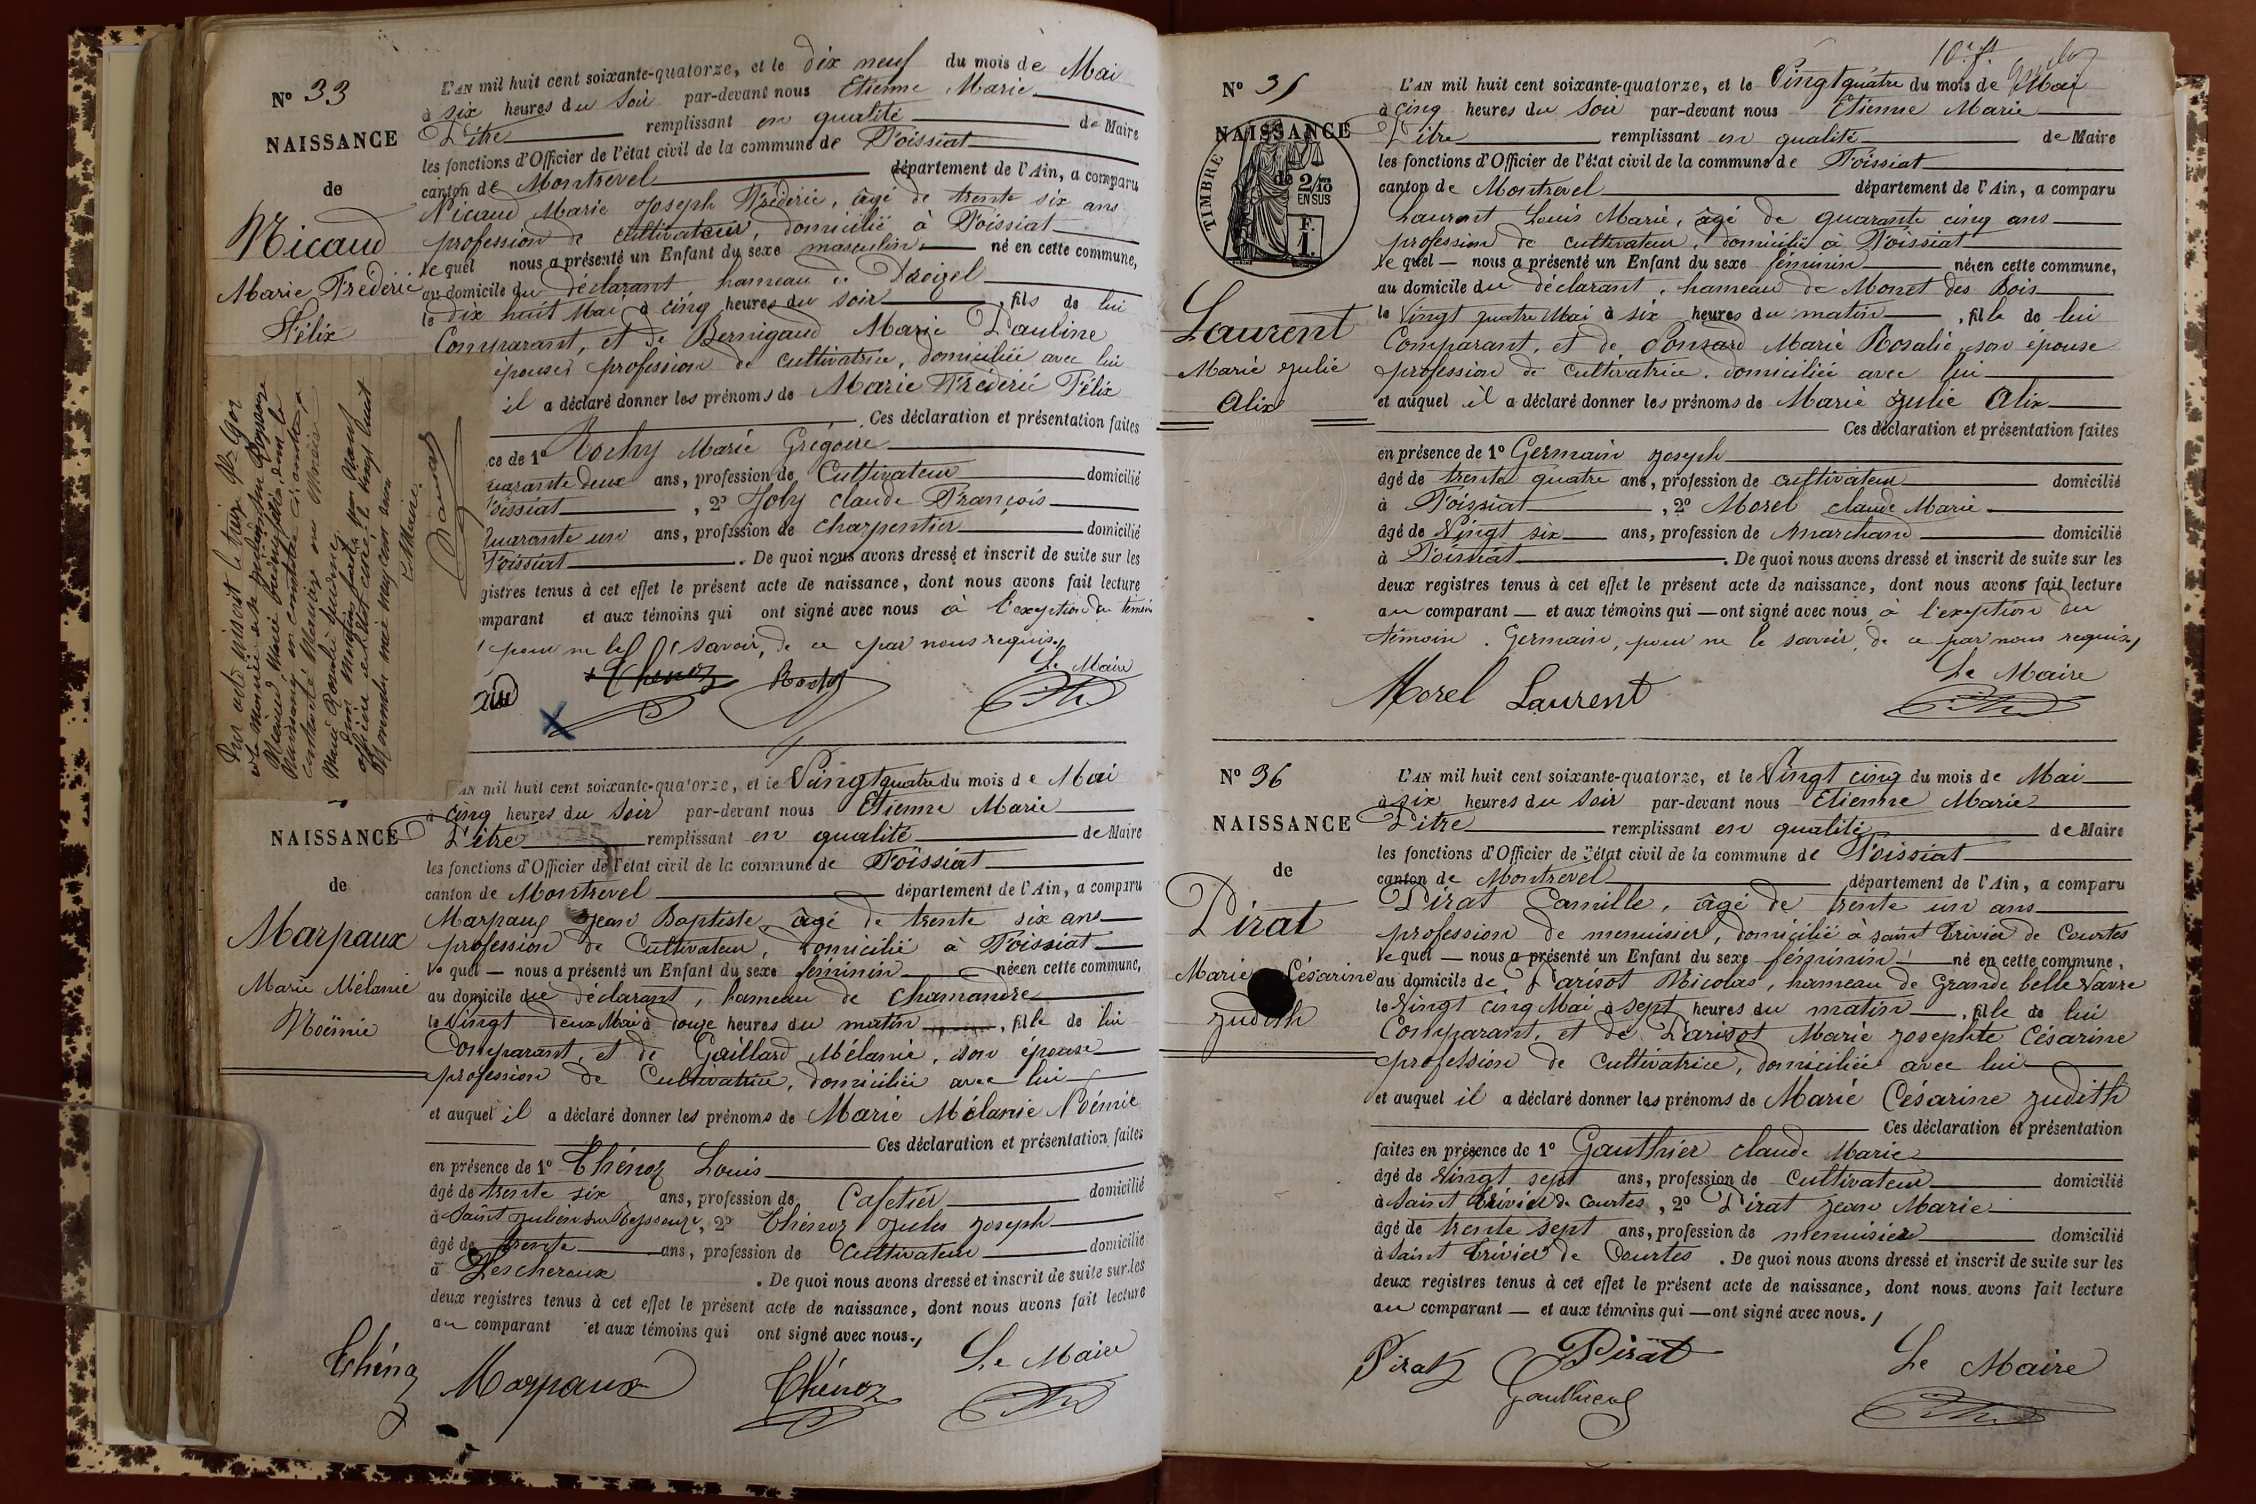 N° 33
NAISSANCE
de
Nicaud
Marie Frédéric
Félix
L'AN mil huit cent soixante-quatorze, et le dix neuf du mois de Mai
à six heures du soir par-devant nous Etienne Marie
Pitre remplissant en qualité de Maire
les fonctions d'Officier de l'état civil de la commune de Foissiat
canton de Montrevel département de l'Ain, a comparu
Nicaud Marie Joseph Frédéric, âgé de trente six ans
profession de cultivateur, domicilié à Foissiat
lequel nous a présenté un Enfant du sexe masculin né en cette commune,
au domicile du déclarant hameau de
le dix huit Mai à cinq heures du soir, fils de lui
Comparant, et de Bernigaud Marie Pauline
épouse, profession de cultivatrice, domiciliée avec lui
il a déclaré donner les prénoms de Marie Frédéric Félix
Ces déclaration et présentation faites
ce de 1° Rochy Marie Grégoire
uarante deux ans, profession de Cultivateur domicilié
Foissiat, 2° Joly Claude François
Quarante un ans, profession de charpentier domicilié
Foissiat. De quoi nous avons dressé et inscrit de suite sur les
gistres tenus à cet effet le présent acte de naissance, dont nous avons fait lecture
omparant et aux témoins qui ont signé avec nous à l'exception du témoin
pour ne le savoir, de ce par nous requis,
Le Maire
aud Thenoz Rochy
Le Maire
AN mil huit cent soixante-quatorze, et le Vingt quatre du mois de Mai
à cinq heures du soir par-devant nous Etienne Marie
NAISSANCE
Pitre remplissant en qualité de Maire
les fonctions d'Officier de l'état civil de la commune de Foissiat
de
canton de Montrevel département de l'Ain, a comparu
Marpaux
Marie Mélanie
Noëmie
Marpaux Jean Baptiste, âgé de trente six ans
profession de Cultivateur, domicilié à Foissiat
le quel — nous a présenté un Enfant du sexe féminin née en cette commune,
au domicile du déclarant, hameau de Chamandre
le Vingt deux Mai à douze heures du matin, fille de lui
Comparant, et de Gaillard Mélanie, son épouse
profession de Cultivatrice, domiciliée avec lui
et auquel il a déclaré donner les prénoms de Marie Mélanie Noémie
Ces déclaration et présentation faites
en présence de 1° Thénoz Louis
âgé de trente six ans, profession de Cafetier domicilié
à Saint Julien sur Reyssouze, 2° Thénoz Jules Joseph
âgé de trente ans, profession de Cultivateur domicilié
à Lescheroux. De quoi nous avons dressé et inscrit de suite sur les
deux registres tenus à cet effet le présent acte de naissance, dont nous avons fait lecture
au comparant et aux témoins qui ont signé avec nous.,
Le Maire
Thénoz Marpaux Thénoz
N° 35
NAISSANCE
de
TIMBRE
2/10 EN SUS
F. 1.
Laurent
Marie Julie
Alix
L'AN mil huit cent soixante-quatorze, et le Vingt quatre du mois de Mai
à cinq heures du Soir par-devant nous Etienne Marie
Pitre remplissant en qualité de Maire
les fonctions d'Officier de l'état civil de la commune de Foissiat
canton de Montrevel département de l'Ain, a comparu
Laurent Louis Marie, âgé de quarante cinq ans
profession de cultivateur, domicilié à Foissiat
le quel — nous a présenté un Enfant du sexe féminin née en cette commune,
au domicile du déclarant, hameau de Monet des Bois
le Vingt quatre Mai à six heures du matin, fille de lui
Comparant, et de Ponsard Marie Rosalie, son épouse
profession de Cultivatrice, domiciliée avec lui
et auquel il a déclaré donner les prénoms de Marie Julie Alix
Ces déclaration et présentation faites
en présence de 1° Germain Joseph
âgé de trente quatre ans, profession de cultivateur domicilié
à Foissiat, 2° Morel Claude Marie
âgé de Vingt six ans, profession de Marchand domicilié
à Foissiat. De quoi nous avons dressé et inscrit de suite sur les
deux registres tenus à cet effet le présent acte de naissance, dont nous avons fait lecture
au comparant — et aux témoins qui — ont signé avec nous, à l'exception du
témoin Germain, pour ne le savoir, de ce par nous requis,
Le Maire
Morel Laurent
N° 36
NAISSANCE
de
Pirat
Marie Césarine
Judith
L'AN mil huit cent soixante-quatorze, et le Vingt cinq du mois de Mai
à six heures du Soir par-devant nous Etienne Marie
Pitre remplissant en qualité de Maire
les fonctions d'Officier de l'état civil de la commune de Foissiat
canton de Montrevel département de l'Ain, a comparu
Pirat Camille, âgé de trente un ans
profession de menuisier, domicilié à Saint Trivier de Courtes
le quel — nous a présenté un Enfant du sexe féminin né en cette commune,
au domicile de Parisot Nicolas, hameau de Grande belle Vavre
le Vingt cinq Mai à sept heures du matin, fille de lui
Comparant, et de Parisot Marie Josephte Césarine
profession de Cultivatrice, domiciliée avec lui
et auquel il a déclaré donner les prénoms de Marie Césarine Judith
Ces déclaration et présentation
faites en présence de 1° Gauthier Claude Marie
âgé de Vingt sept ans, profession de Cultivateur domicilié
à Saint Trivier de Courtes, 2° Pirat Jean Marie
âgé de trente sept ans, profession de menuisier domicilié
à Saint Trivier de Courtes. De quoi nous avons dressé et inscrit de suite sur les
deux registres tenus à cet effet le présent acte de naissance, dont nous avons fait lecture
au comparant — et aux témoins qui — ont signé avec nous.,
Le Maire
Pirat Pirat
Gauthier